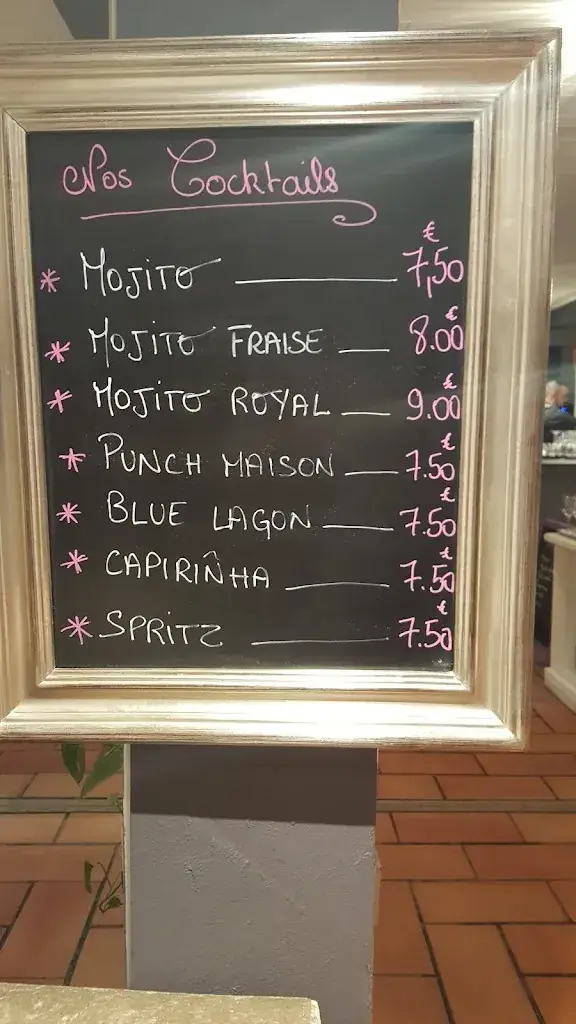 Nos Cocktails
* MOJITO 7,50 €
* MOJITO FRAISE 8.00 €
* MOJITO ROYAL 9.00 €
* PUNCH MAISON 7.50 €
* BLUE LAGON 7.50 €
* CAPIRIÑHA 7.50 €
* SPRITZ 7.50 €